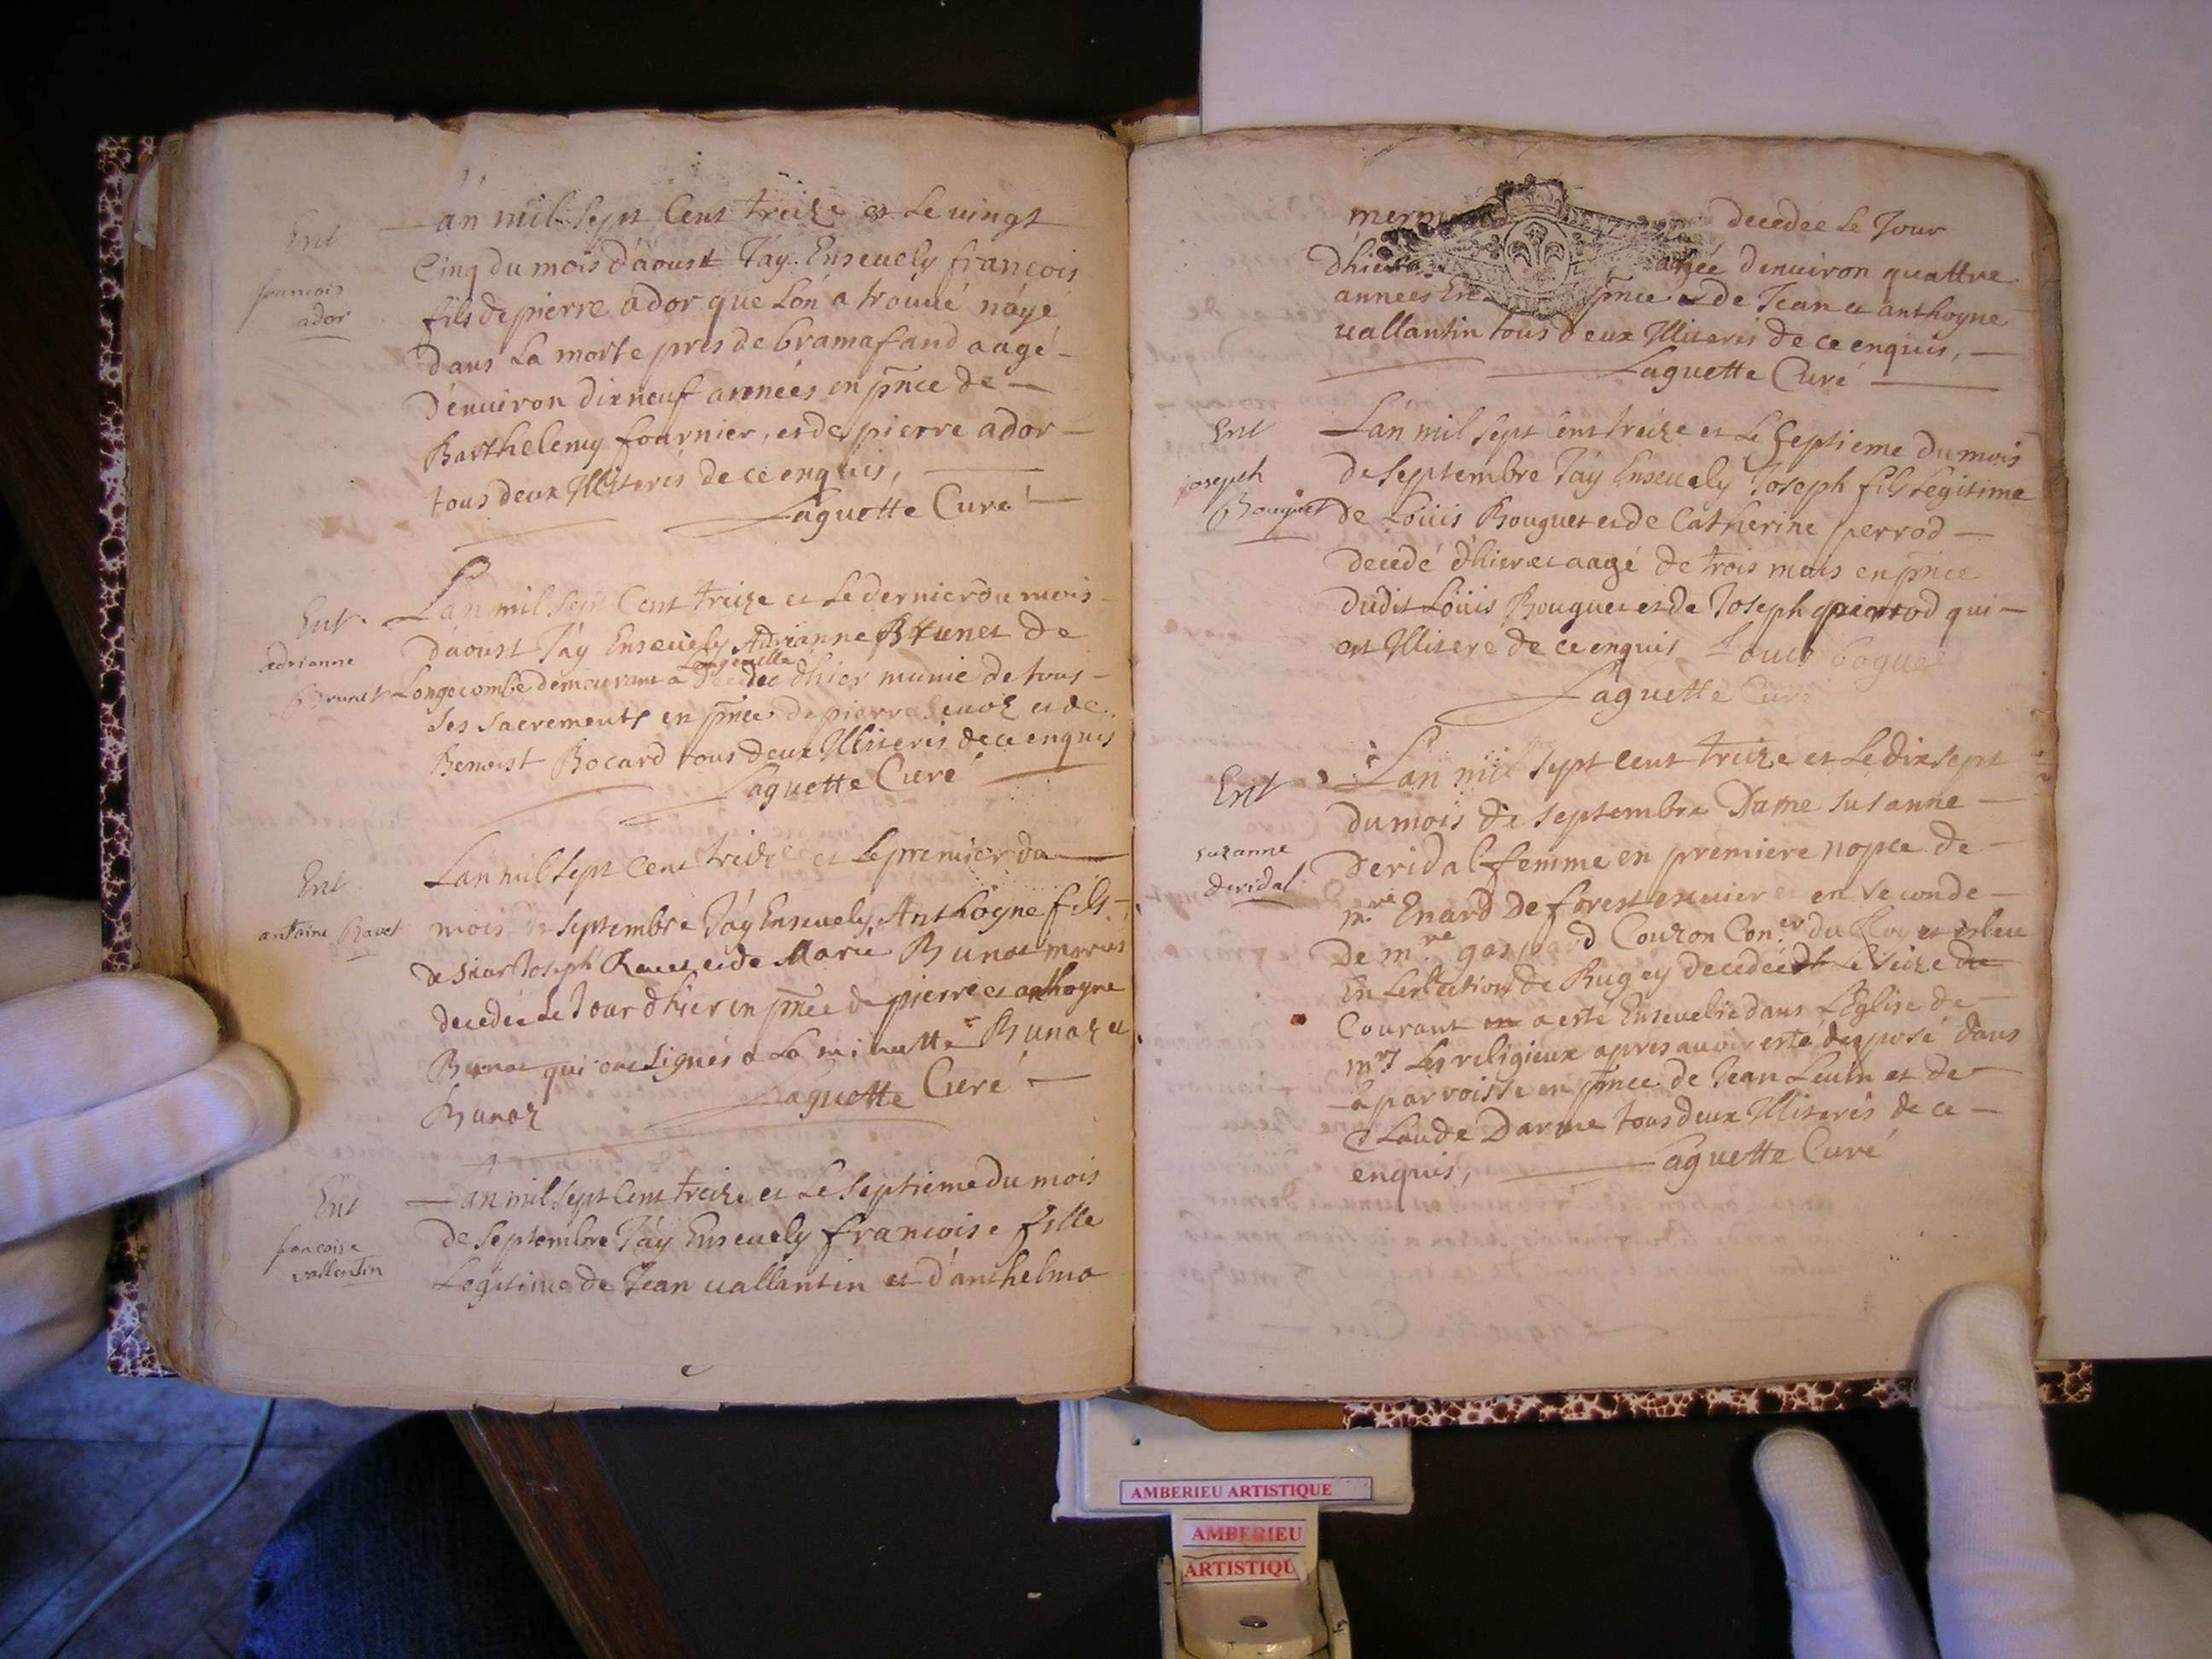 Ent
francois
ador
Lan mil sept Cent treize et Le vingt
Cinq du mois d'aoust J'ay Enseuely françois
fils de pierre ador que Lon a trouué naÿé
dans La morte pres de bramafand aagé
D'enuiron dixneuf années en pñce de
Barthelemy fournier, et de pierre ador
tous deux Illiterés de ce enquis,
Laguette Curé
Ent
adrianne
Brunet
Lan mil sept Cent treize et Le dernier du mois
D'aoust J'ay Enseuely Adrianne Brunet de
Longeuelle
Longecombe demeurant a decedee dhier munie de tous
Ses Sacrements en pñce de pierre et de
Benoist Bocard tous deux Illiterés de ce enquis
Laguette Curé
Ent
antoine Ravet
Lan mil sept Cent treize et Le premier du
mois de Septembre J'ay Enseuely Anthoyne fils
de Sieur Joseph Rauet et de Marie Bunat
decedee Le Jour dhier en pñce de pierre et anthoyne
Bunat qui ont Signés a La minutte Bunaz et
Bunaz Laguette Curé
Ent
francoise
vallentin
Lan mil sept Cent treize et Le Septieme du mois
de Septembre J'ay Enseuely francoise fille
Legitime de Jean uallantin et d'anthelma
decedée Le Jour
Dhier aagée denuiron quattre
années En pñce de Jean et anthoyne
uallantin tous deux Illiterés de ce enquis,
Laguette Curé
Ent
joseph
Bouguet
Lan mil sept Cent treize et Le Septieme du mois
de Septembre J'ay Enseuely Joseph fils Legitime
de Loüis Bouguet et de Catherine perrod
decedé dhier et aagé de trois mois en pñce
dudit Loüis Bouguet et de Joseph qui
est Illiteré de ce enquis Louis boguet
Laguette Curé
Ent
suzanne
deridal
Lan mil sept cent treize et Le dix sept
du mois de Septembre Dame Susanne
deridal femme en premiere nopce de
m.re Enard De forest escuier et en Seconde
De m.re gaspard Couzon Con.er du Roy et esleu
En Lesletion de Bugey decedée Le Seize du
Courant a esté Enseuelie dans L'Eglise de
m.rs Les religieux apres auoir esté deposé dans
La parroisse en pñce de Jean Leuin et de
Claude Darme tous deux Illiterés de ce
enquis, Laguette Curé
AMBERIEU ARTISTIQUE
AMBERIEU
ARTISTIQU